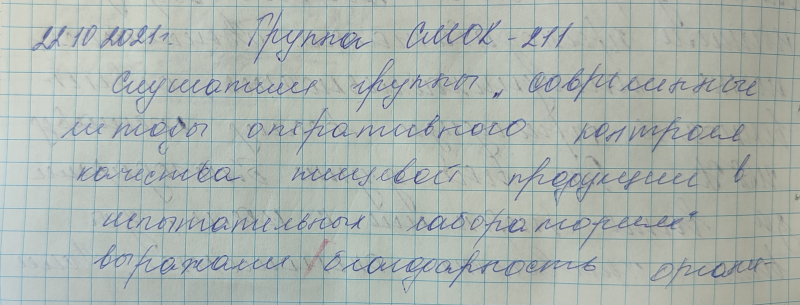 22.10.2021г. Группа СМОК-211
Слушатели группы „Современные
методы оперативного контроля
качества пищевой продукции в
испытательных лабораториях"
выражали благодарность органи-